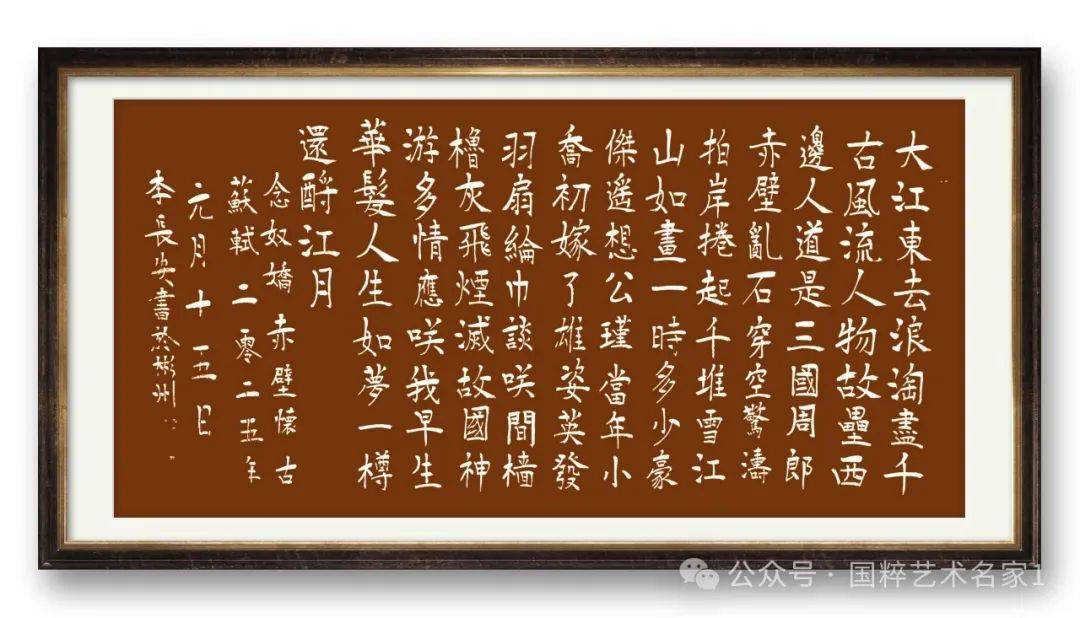 大江東去浪淘盡千
古風流人物故壘西
邊人道是三國周郎
赤壁亂石穿空驚濤
拍岸捲起千堆雪江
山如畫一時多少豪
傑遥想公瑾當年小
喬初嫁了雄姿英發
羽扇綸巾談咲間檣
櫓灰飛煙滅故國神
游多情應咲我早生
華髮人生如夢一樽
還酹江月
念奴嬌赤壁懷古
蘇軾二零二五年
元月十五日
李長安書於彬州
公众号·国粹艺术名家1